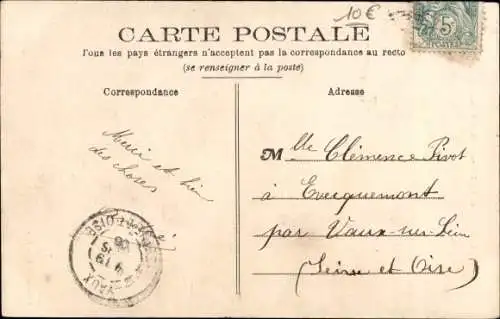 10 €
5
POSTES
CARTE POSTALE
Tous les pays étrangers n'acceptent pas la correspondance au recto
(se renseigner à la poste)
Correspondance
Adresse
Merci et bien
des choses
Mlle Clémence Pivot
à Evecquemont
par Vaux-sur-Sein
(Seine et Oise)
VAUX